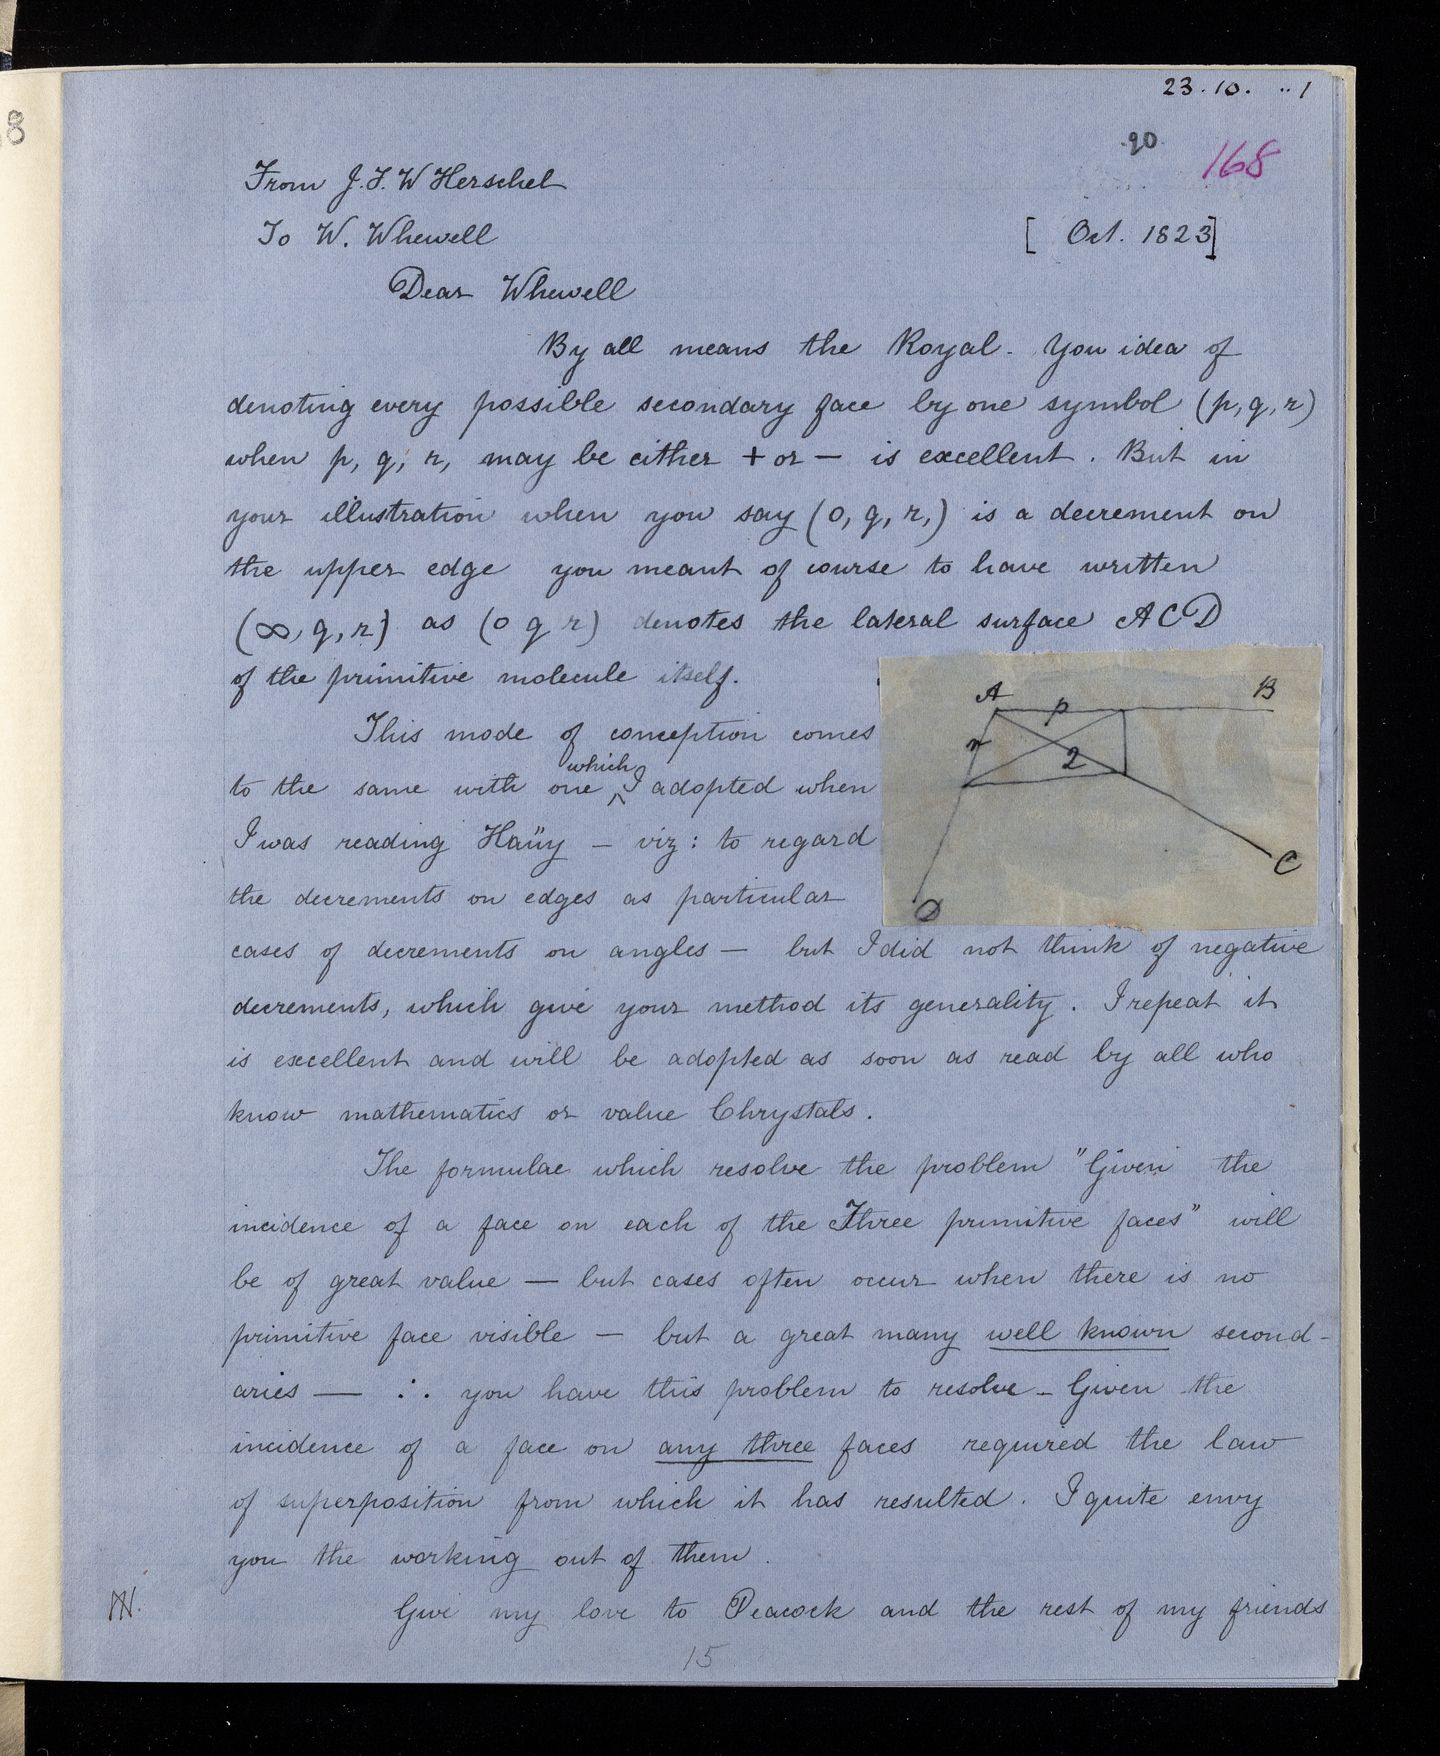 8
23.10. ..1
90
168
From J. F. W Herschel
To W. Whewell
[ Oct. 1823]
Dear Whewell
By all means the Royal. You idea of
denoting every possible secondary face by one symbol (p, q, r)
when p, q, r, may be either + or — is excellent. But in
your illustration when you say (0, q, r,) is a decrement on
the upper edge you meant of course to have written
(∞, q, r) as (0 q r) denotes the lateral surface ACD
of the primitive molecule itself.
A p B
r 2
C
D
This mode of conception comes
to the same with one which I adopted when
I was reading Haüy — viz: to regard
the decrements on edges as particular
cases of decrements on angles — but I did not think of negative
decrements, which give your method its generality. I repeat it
is excellent and will be adopted as soon as read by all who
know mathematics or value Chrystals.
The formulae which resolve the problem "Given the
incidence of a face on each of the Three primitive faces" will
be of great value — but cases often occur when there is no
primitive face visible — but a great many well known second-
aries — ∴ you have this problem to resolve – Given the
incidence of a face on any three faces required the law
of superposition from which it has resulted. I quite envy
you the working out of them.
Give my love to Peacock and the rest of my friends
15